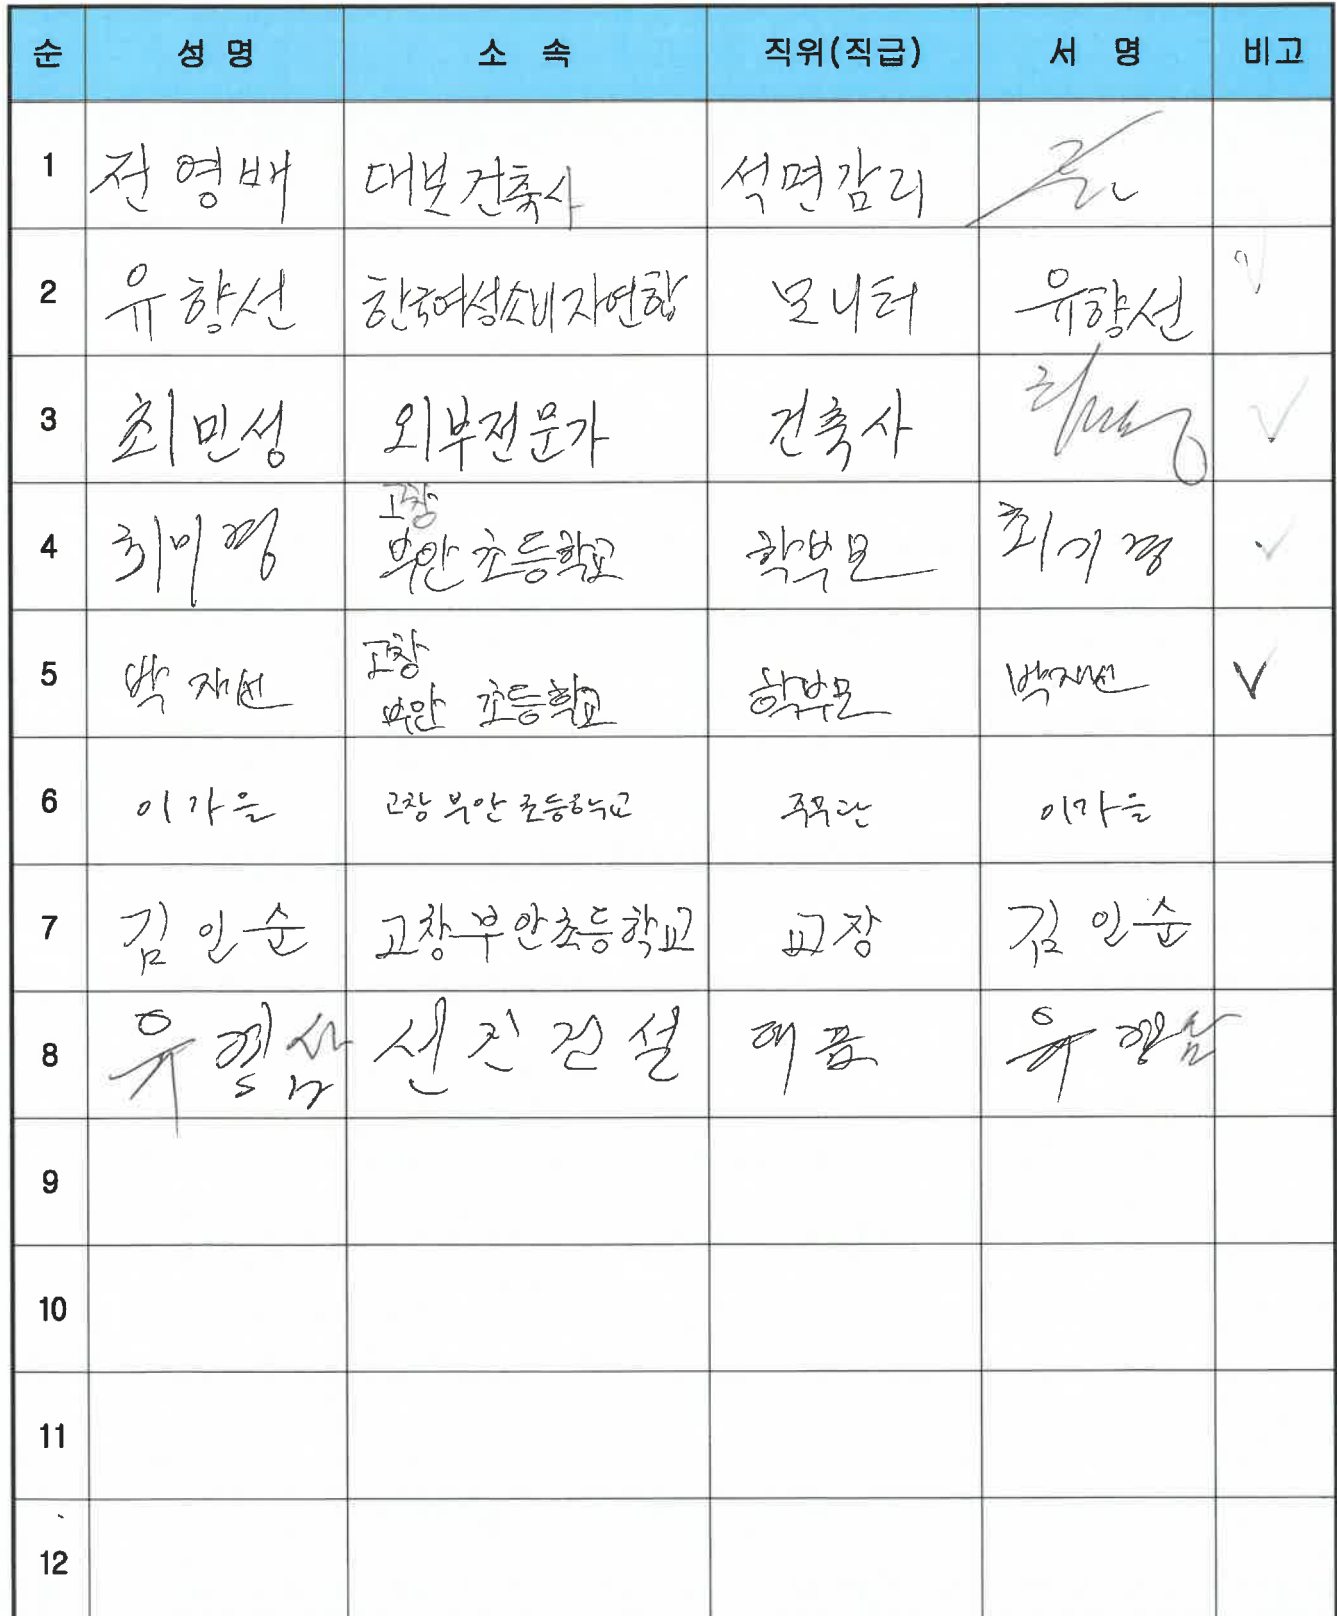 순 성명 소속 직위(직급) 서명 비고
1 전영배 대보건축사 석면감리
2 유향선 한국여성소비자연합 모니터 유향선
3 최민성 외부전문가 건축사 ✓
4 최미경 고창 부안초등학교 학부모 최미경 ✓
5 박재선 고창 부안 초등학교 학부모 박재선 V
6 이가을 고창 부안 초등학교 주무관 이가을
7 김인순 고창부안초등학교 교장 김인순
8 신진건설
9
10
11
12